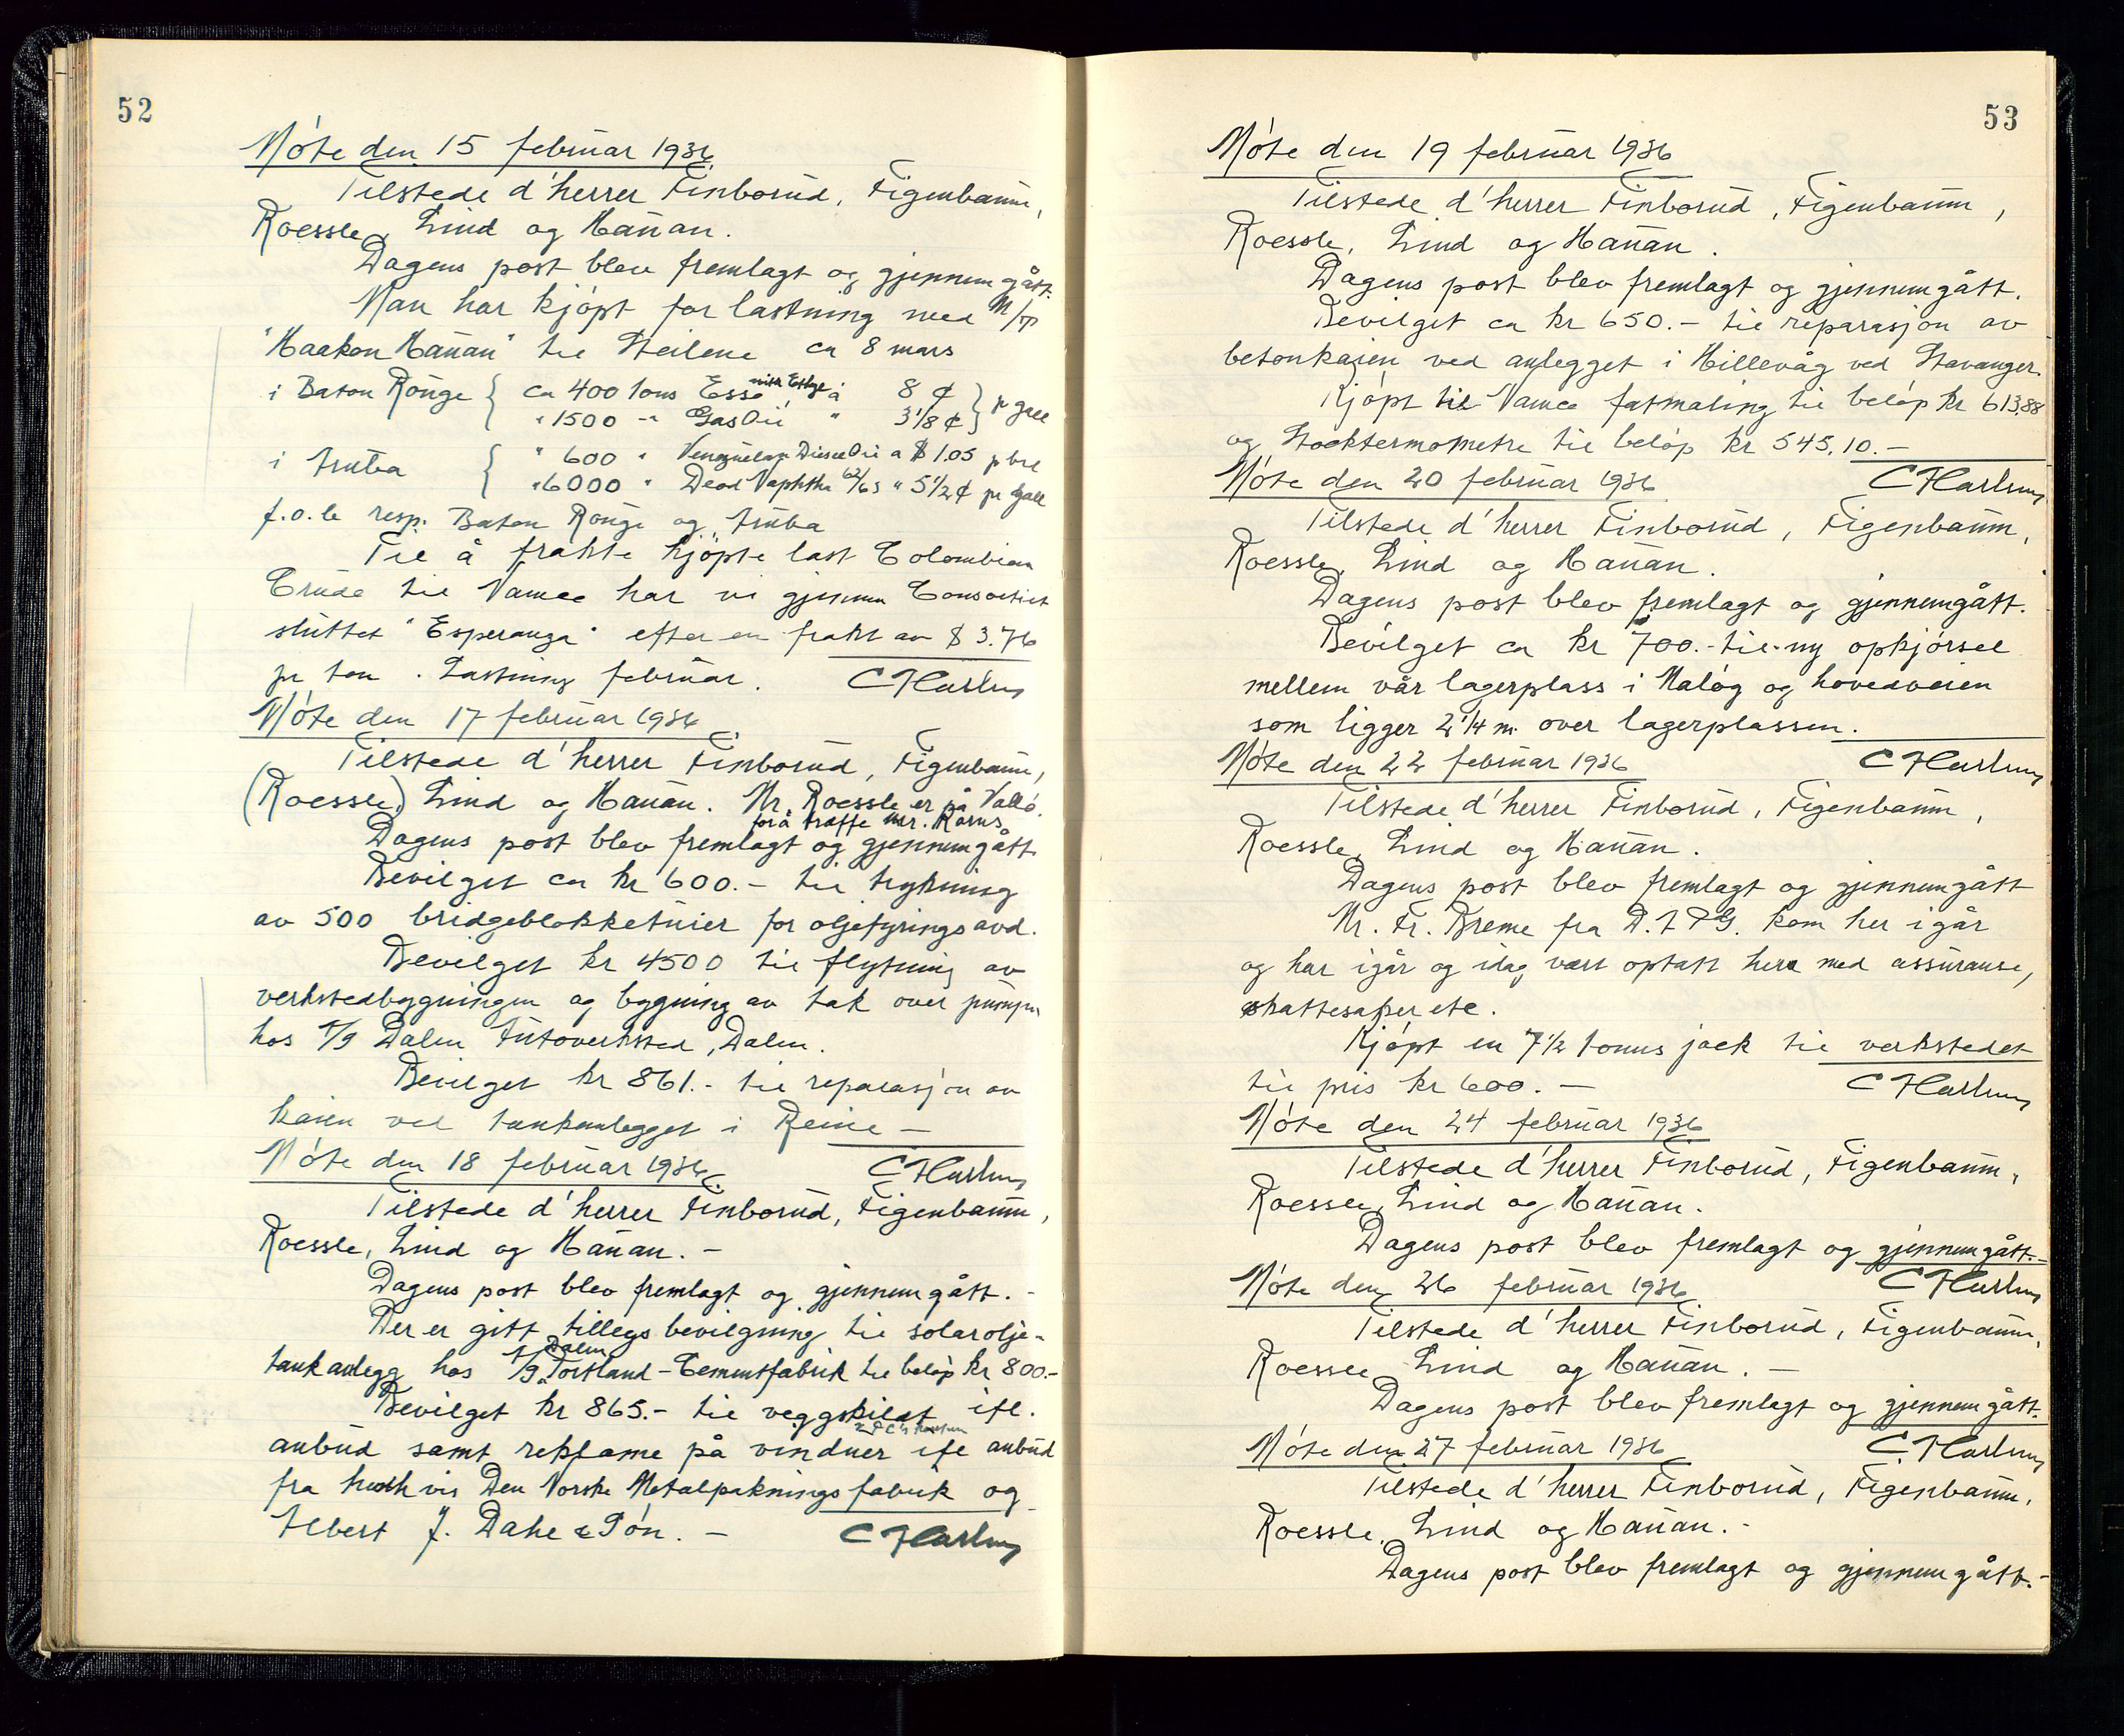 52
Møte den 15 februar 1936.
Tilstede d'herrer Finborud, Figenbaum,
Roessle, Lind og Hauan.
Dagens post blev fremlagt og gjennemgått.
Man har kjøpt for lastning med M/T
"Haakon Hauan" til Steilene ca 8 mars
i Baton Rouge { ca 400 tons Esso with Ethyl à 8 ¢ } pr gall
" 1500 -"- Gas Oil " 3 1/8 ¢
i Aruba { " 600 " Venezuelan Diesel Oil a $ 1.05 p brl
" 6000 " Dead Naphtha 62/63 " 5 1/2 ¢ pr gall
f.o.b resp. Baton Rouge og Aruba
Til å frakte kjøpte last Colombian
Crude til Vamee har vi gjennem Consortiet
sluttet "Esperanza" efter en frakt av $ 3.76
pr ton. Lastning februar.
C Harlung
Møte den 17 februar 1936.
Tilstede d'herrer Finborud, Figenbaum,
(Roessle,) Lind og Hauan. Mr. Roessle er på Vallø
for å træffe mr. Karns
Dagens post blev fremlagt og gjennemgått
Bevilget ca kr 600.- til trykning
av 500 bridgeblokketuier for oljefyringsavd.
Bevilget kr 4500 til flytning av
verkstedbygningen og bygning av tak over pumpen
hos A/S Dalen Autoverksted, Dalen.
Bevilget kr 861.- til reparasjon av
kaien ved tankanlegget i Reine -
Møte den 18 februar 1936.
C Harlung
Tilstede d'herrer Finborud, Figenbaum,
Roessle, Lind og Hauan. -
Dagens post blev fremlagt og gjennemgått. -
Der er gitt tillegsbevilgning til solarolje-
tankanlegg hos A/S Dalen Portland-Cementfabrik til beløp kr 800.-
Bevilget kr 865.- til veggskilt ifl.
anbud samt reklame på vinduer ifl anbud
fra hvdhvis Den Norske Metalpakningsfabrik og
Albert J. Dahl & Søn. -
C Harlung
53
Møte den 19 februar 1936
Tilstede d'herrer Finborud, Figenbaum,
Roessle, Lind og Hauan.
Dagens post blev fremlagt og gjennemgått.
Bevilget ca kr 650.- til reparasjon av
betonkaien ved anlegget i Hillevåg ved Stavanger.
Kjøpt til Vamee fatmaling til beløp kr 613,88
og Stocktermometre til beløp kr 545.10.-
Møte den 20 februar 1936
C Harlung
Tilstede d'herrer Finborud, Figenbaum,
Roessle, Lind og Hauan.
Dagens post blev fremlagt og gjennemgått.
Bevilget ca kr 700.- til ny opkjørsel
mellem vår lagerplass i Måløy og hovedveien
som ligger 2 1/4 m. over lagerplassen.
Møte den 22 februar 1936
C Harlung
Tilstede d'herrer Finborud, Figenbaum,
Roessle, Lind og Hauan.
Dagens post blev fremlagt og gjennemgått
Mr. Fr. Breme fra D.A.P.G. kom her igår
og har igår og idag vært optatt here med assuranse,
skattesaker etc.
Kjøpt en 7 1/2 tonns jack til verkstedet
til pris kr 600.-
C Harlung
Møte den 24 februar 1936
Tilstede d'herrer Finborud, Figenbaum,
Roessle, Lind og Hauan.
Dagens post blev fremlagt og gjennemgått.-
Møte den 26 februar 1936
C Harlung
Tilstede d'herrer Finborud, Figenbaum,
Roessle Lind og Hauan. -
Dagens post blev fremlagt og gjennemgått.
Møte den 27 februar 1936
C. Harlung
Tilstede d'herrer Finborud, Figenbaum,
Roessle, Lind og Hauan. -
Dagens post blev fremlagt og gjennemgått.-